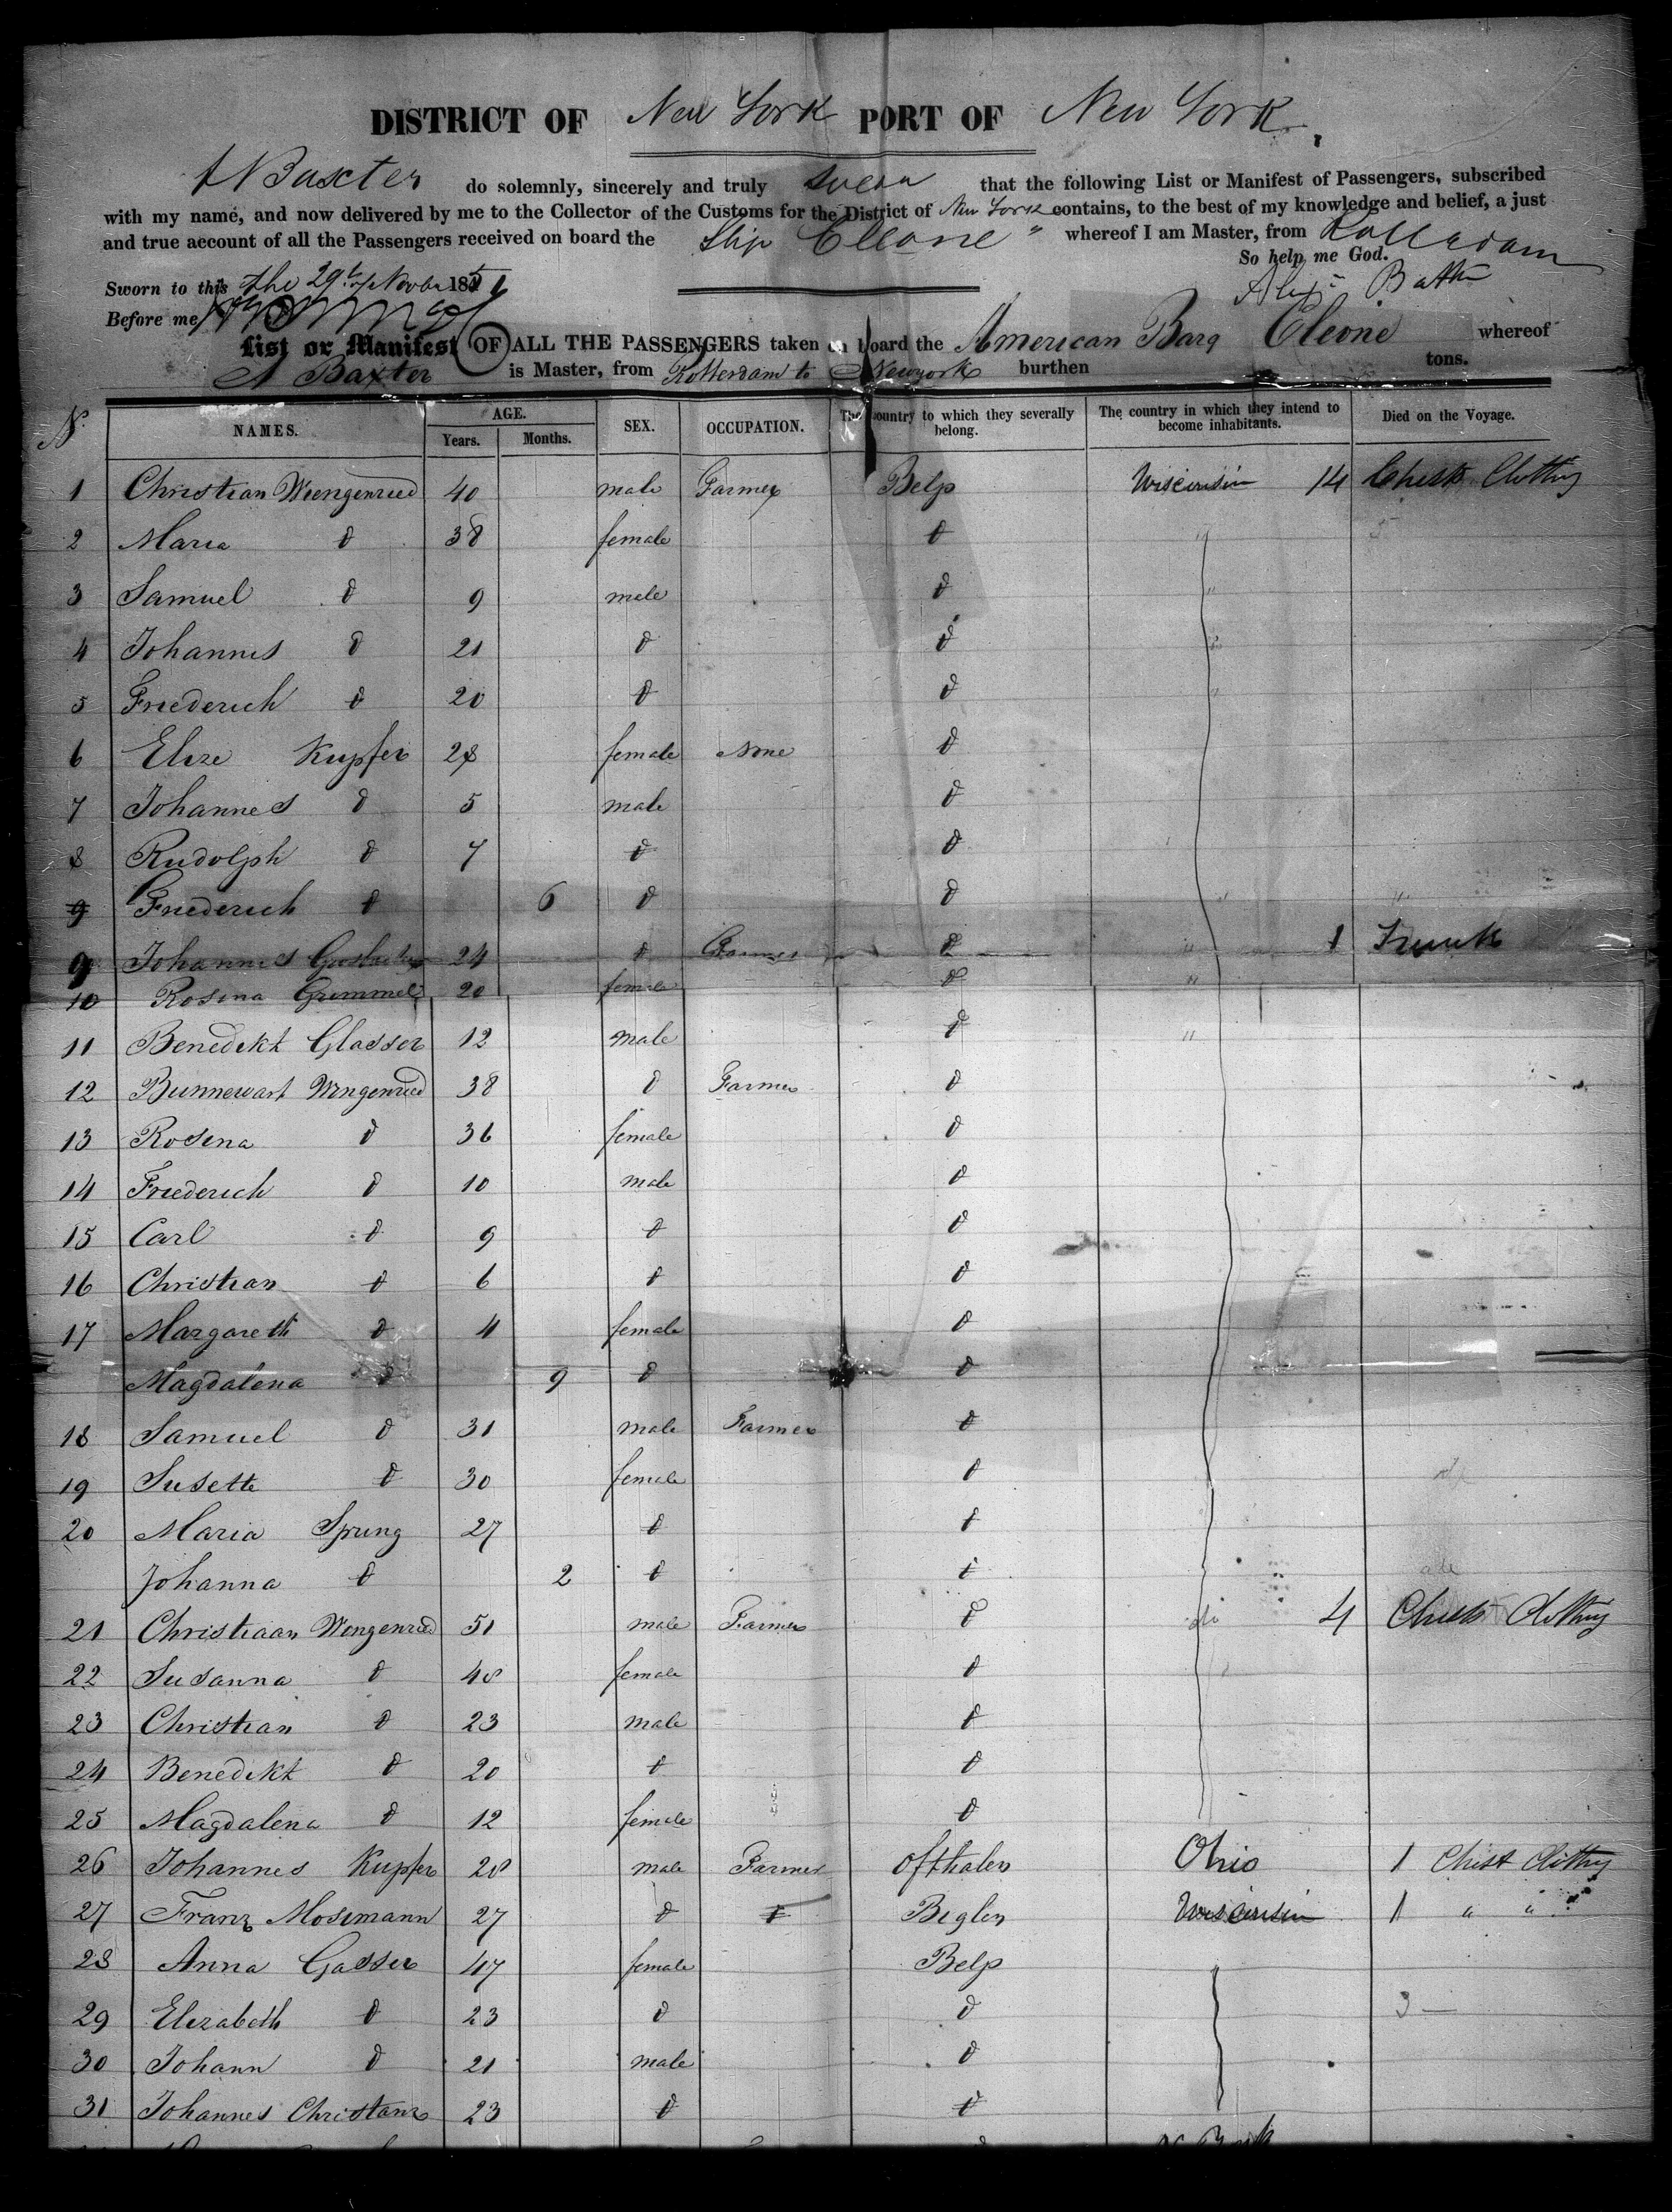 DISTRICT OF New York PORT OF New York
A Baxter do solemnly, sincerely and truly swear that the following List or Manifest of Passengers, subscribed
with my name, and now delivered by me to the Collector of the Customs for the District of New York contains, to the best of my knowledge and belief, a just
and true account of all the Passengers received on board the Ship Cleone whereof I am Master, from Rotterdam
So help me God.
Sworn to this the 29th of Novbr 1851
Before me
List or Manifest OF ALL THE PASSENGERS taken on board the American Barq Cleone whereof
A Baxter is Master, from Rotterdam to Newyork burthen tons.
No. NAMES. AGE. Years. Months. SEX. OCCUPATION. The country to which they severally belong. The country in which they intend to become inhabitants. Died on the Voyage.
1 Christian Wengenried 40 male Farmer Belp Wisconsin 14 Chests Clothing
2 Maria d 38 female d "
3 Samuel d 9 male d "
4 Johannes d 21 d d "
5 Friederich d 20 d d "
6 Elise Kupfer 28 female None d
7 Johannes d 5 male d
8 Rudolph d 7 d d
9 Friederich d 6 d d "
9 Johannes 24 d Farmer d " 1 Trunk
10 Rosina Grimmel 20 female d "
11 Benedikt Glasser 12 male d "
12 Bunnewart Wengenried 38 d Farmer d
13 Rosina d 36 female d
14 Friederich d 10 male d
15 Carl d 9 d d
16 Christian d 6 d d
17 Margareth d 4 female d
Magdalena d 9 d d
18 Samuel d 31 male Farmer d
19 Susette d 30 female d
20 Maria Sprung 27 d d
Johanna d 2 d d
21 Christiaan Wengenried 51 male Farmer d do 4 Chests Clothing
22 Susanna d 48 female d
23 Christian d 23 male d
24 Benedikt d 20 d d
25 Magdalena d 12 female d
26 Johannes Kupfer 28 male Farmer Ofthalen Ohio 1 Chest Clothing
27 Franz Mosimann 27 d d Biglen Wisconsin 1 " "
28 Anna Gasser 47 female Belp
29 Elizabeth d 23 d d 3
30 Johann d 21 male d
31 Johannes Christans 23 d d